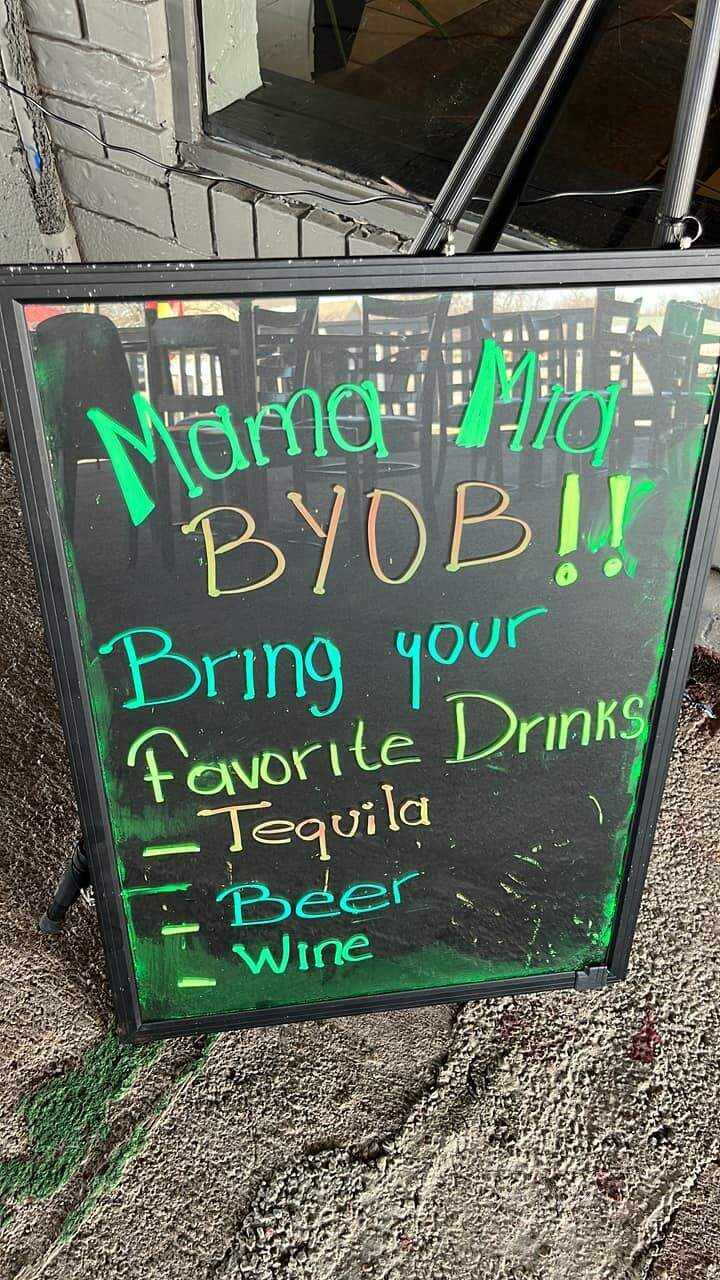 Mama Mia
BYOB!!
Bring your
Favorite Drinks
- Tequila
- Beer
- Wine